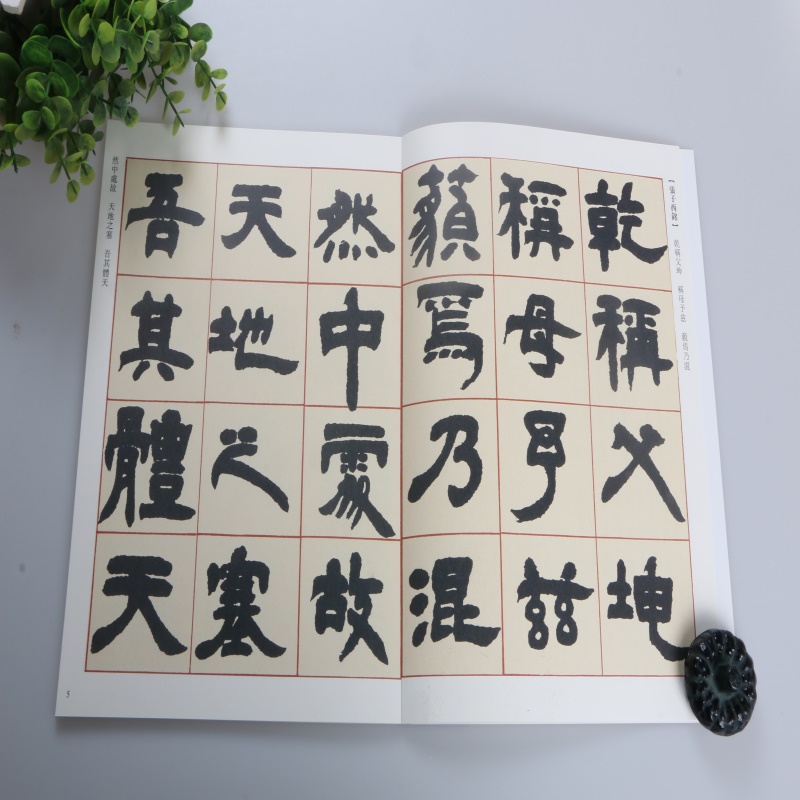 【張子西銘】 乾稱父坤 稱母予茲 藐焉乃混
乾稱父坤
稱母予茲
藐焉乃混
然中處故
天地之塞
吾其體天
然中處故 天地之塞 吾其體天
5